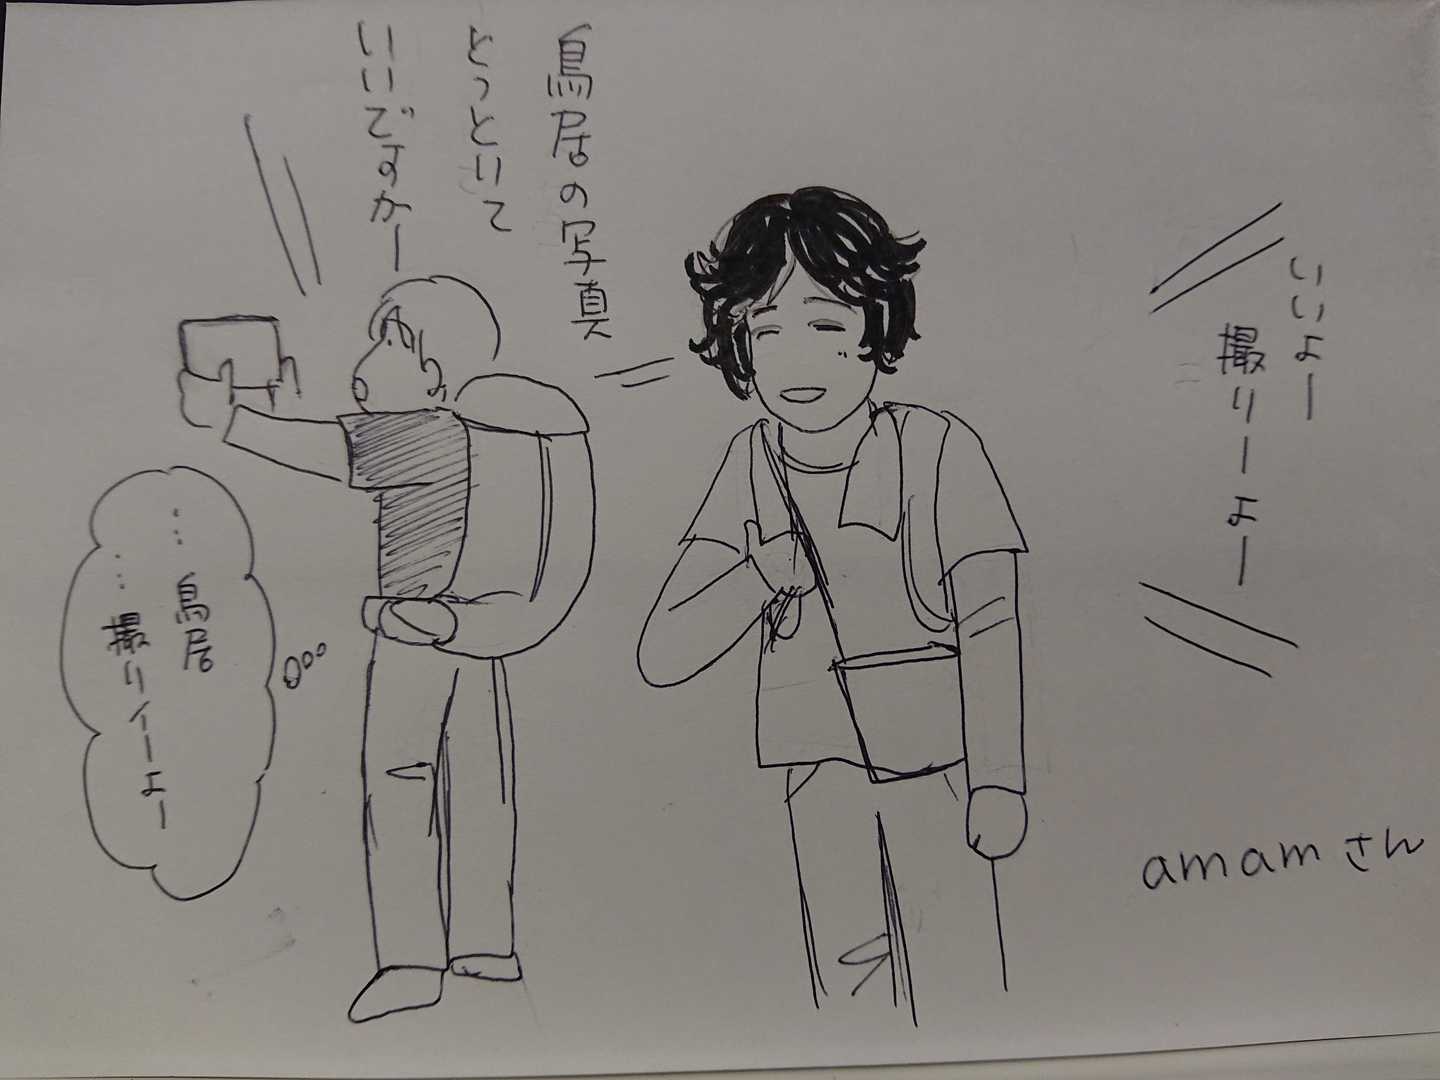 いいよー
撮りーよー
鳥居の写真
とっといて
いいですかー
… 鳥居
… 撮りイーよー
amamさん